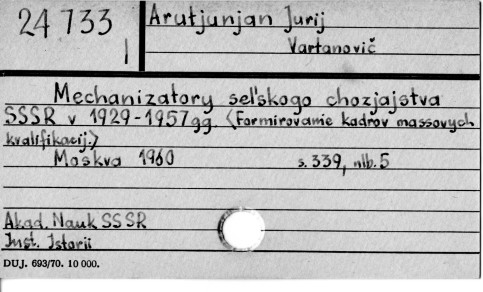 24 733
I
Arutjunjan Jurij
Vartanovič
Mechanizatory sel'skogo chozjajstva
SSSR v 1929-1957gg. (Formirovanie kadrov massovych
kvalifikacij.)
Moskva 1960 s. 339, nlb. 5
Akad. Nauk SSSR
Inst. Istorii
DUJ. 693/70. 10 000.